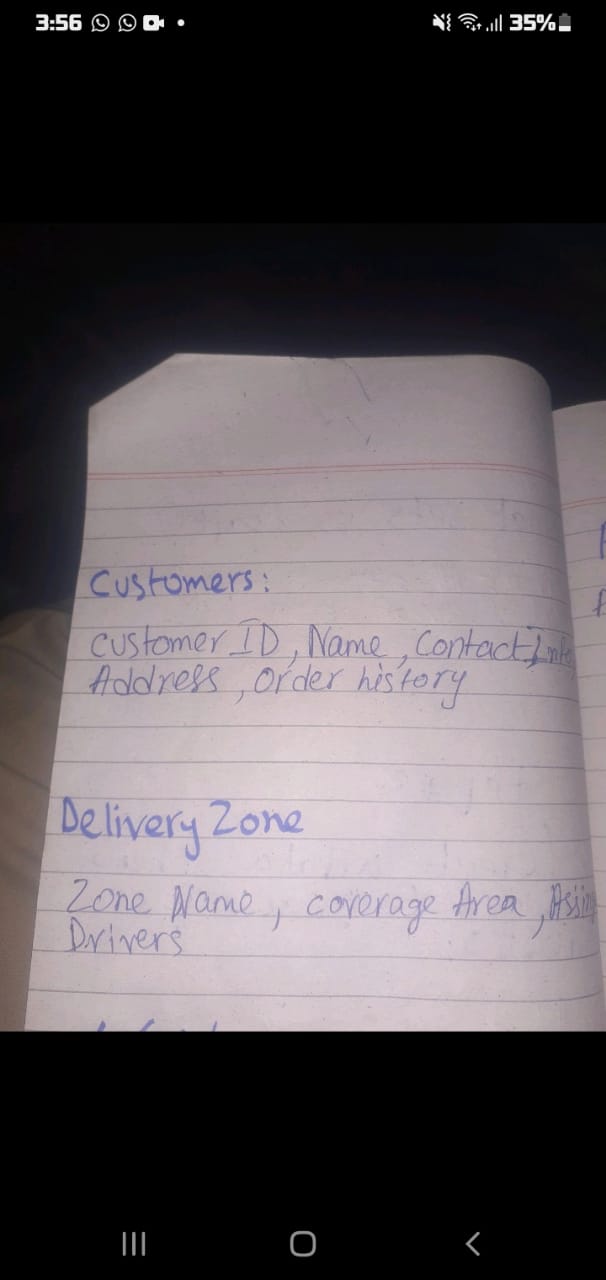 3:56
35%
Customers:
Customer ID, Name, Contact Info
Address, Order history
Delivery Zone
Zone Name, coverage Area,
Drivers